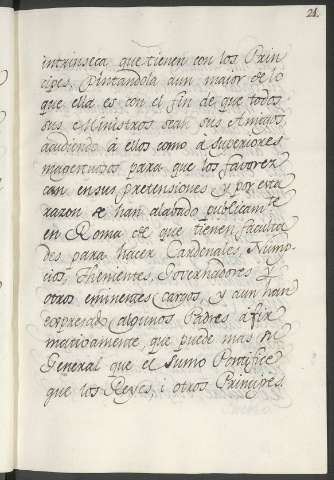 21.
intrinseca que tienen con los Prin
cipes, Pintandola aun maior de lo
que ella es con el fin de que todos
sus Ministros sean sus Amigos,
acudiendo à ellos como à Superiores
magestuosos para que los favorez
can en sus pretensiones y por esta
razon se han alabado publicam.te
en Roma de que tienen faculta
des para hacer Cardenales, Nump
cios, Thenientes, Governadores y
otros eminentes cargos, y aun han
algunos Padres afir
mativamente que puede mas su
General que el Sumo Pontifice
que los Reyes, i otros Principes.